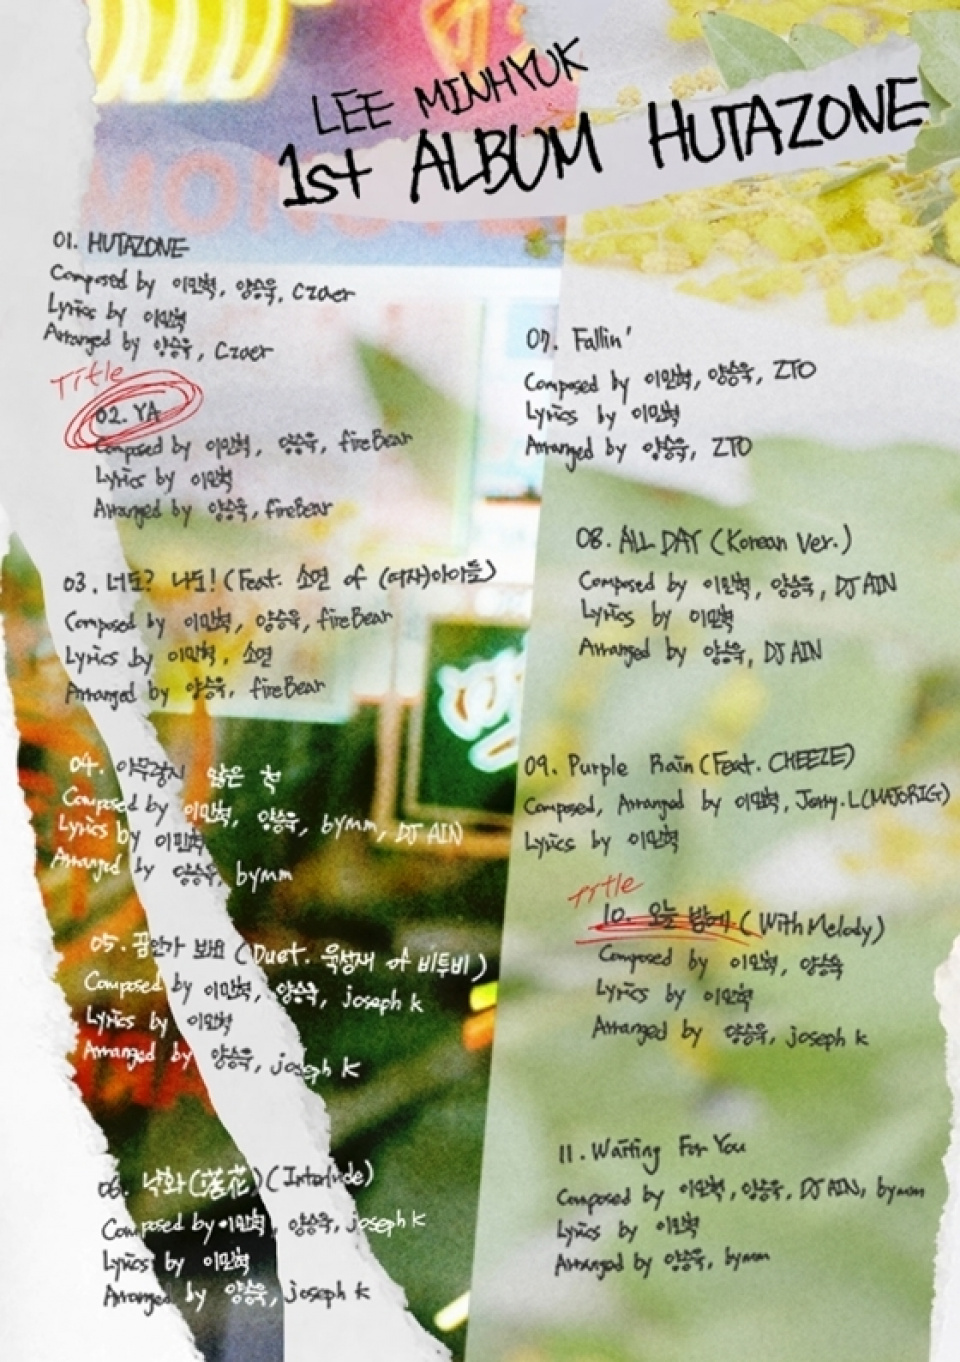 LEE MINHYUK
1st ALBUM HUTAZONE
01. HUTAZONE
Composed by 이민혁, 양승욱, Czaer
Lyrics by 이민혁
Arranged by 양승욱, Czaer
Title
02. YA
Composed by 이민혁, 양승욱, fireBear
Lyrics by 이민혁
Arranged by 양승욱, fireBear
03. 너도? 나도! (Feat. 소연 of (여자)아이들)
Composed by 이민혁, 양승욱, fireBear
Lyrics by 이민혁, 소연
Arranged by 양승욱, fireBear
04. 아무렇지 않은 척
Composed by 이민혁, 양승욱, bymm, DJ AIN
Lyrics by 이민혁
Arranged by 양승욱, bymm
05. 꿈인가 봐요 (Duet. 육성재 of 비투비)
Composed by 이민혁, 양승욱, joseph k
Lyrics by 이민혁
Arranged by 양승욱, joseph k
06. 낙화(落花) (Interlude)
Composed by 이민혁, 양승욱, joseph k
Lyrics by 이민혁
Arranged by 양승욱, joseph k
07. Fallin'
Composed by 이민혁, 양승욱, ZTO
Lyrics by 이민혁
Arranged by 양승욱, ZTO
08. ALL DAY (Korean Ver.)
Composed by 이민혁, 양승욱, DJ AIN
Lyrics by 이민혁
Arranged by 양승욱, DJ AIN
09. Purple Rain (Feat. CHEEZE)
Composed, Arranged by 이민혁, Jerry.L (MAJORIG)
Lyrics by 이민혁
Title
10. 오늘 밤에 (With Melody)
Composed by 이민혁, 양승욱
Lyrics by 이민혁
Arranged by 양승욱, joseph k
11. Waiting For You
Composed by 이민혁, 양승욱, DJ AIN, bymm
Lyrics by 이민혁
Arranged by 양승욱, bymm